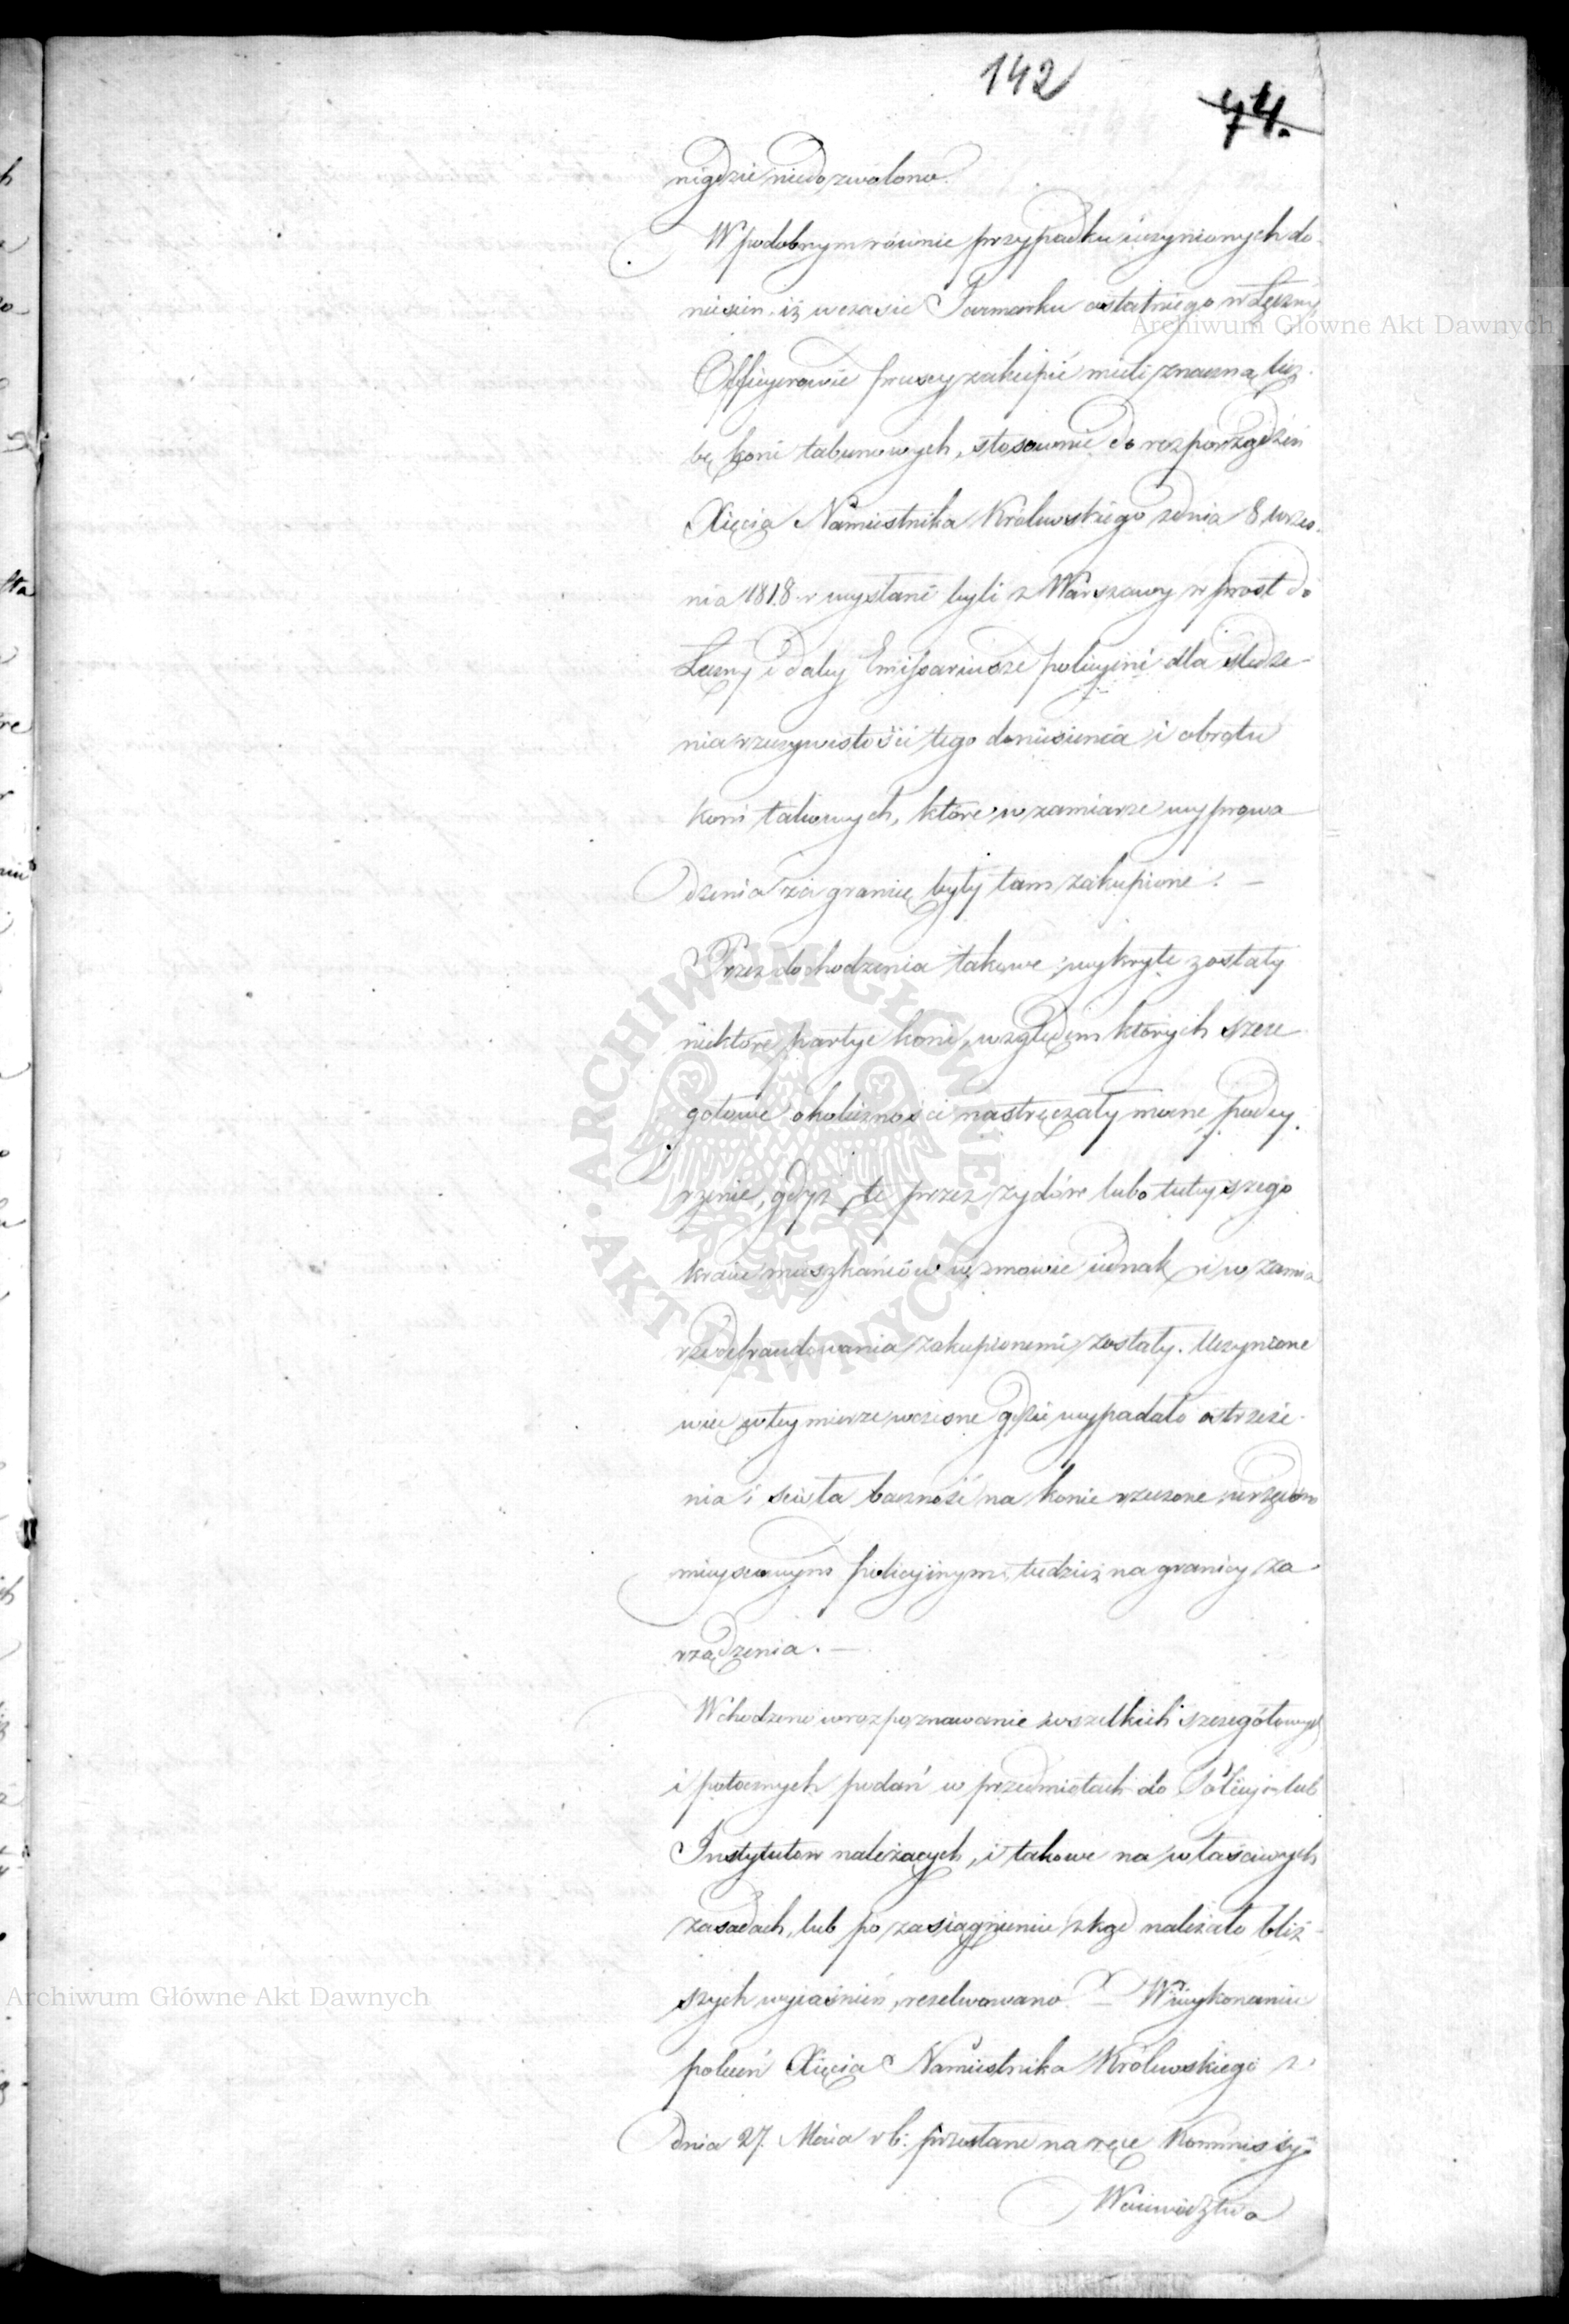 142
74.
nigdzie niedozwolono.
W podobnym równie przypadku uczynionych do-
niesień, iż w czasie Jarmarku ostatniego w Łęczny
Archiwum Główne Akt Dawnych
Officyerowie pruscy zakupić mieli znaczną licz-
bę koni tabunowych, stosownie do rozporządzeń
Xięcia Namiestnika Królewskiego z dnia 8 Wrze-
nia 1818 r wysłani byli z Warszawy w prost do
Łęczny i daley Emissariusze policyini dla śledze-
nia rzeczywistości tego doniesienia i obrotu
koni takowych, które w zamiarze wyprowa-
dzenia za granicę były tam zakupione. —
Przez dochodzenia takowe, wykryte zostały
niektóre partye koni, względem których szcze-
gołowe okoliczności nastręczały mocne podey-
rzenie, gdyż te przez żydów lubo tuteyszego
kraiu mieszkańców w zmowie iednak i w zamia
rze defraudowania zakupionemi zostały. Uczynione
więc w tey mierze wczesne gdzie wypadało ostrzeże-
nia i scisła baczność na konie rzeczone urzędom
mieyscowym policyinym, tudzież na granicy za-
rządzenia. —
Wchodzono w rozpoznawanie wszelkich szczegółowych
i potocznych podań w przedmiotach do Policyi lub
Instytutow należacych, i takowe na właściwych
zasadach, lub po zasiągnieniu zkąd należało bliż-
szych wyiaśnień, rezolwowano. — W wykonaniu
Archiwum Główne Akt Dawnych
poleceń Xięcia Namiestnika Królewskiego z
dnia 27. Maia r b: przesłane na ręce Kommissyi
Woiewództwa
ARCHIWUM GŁÓWNE AKT DAWNYCH